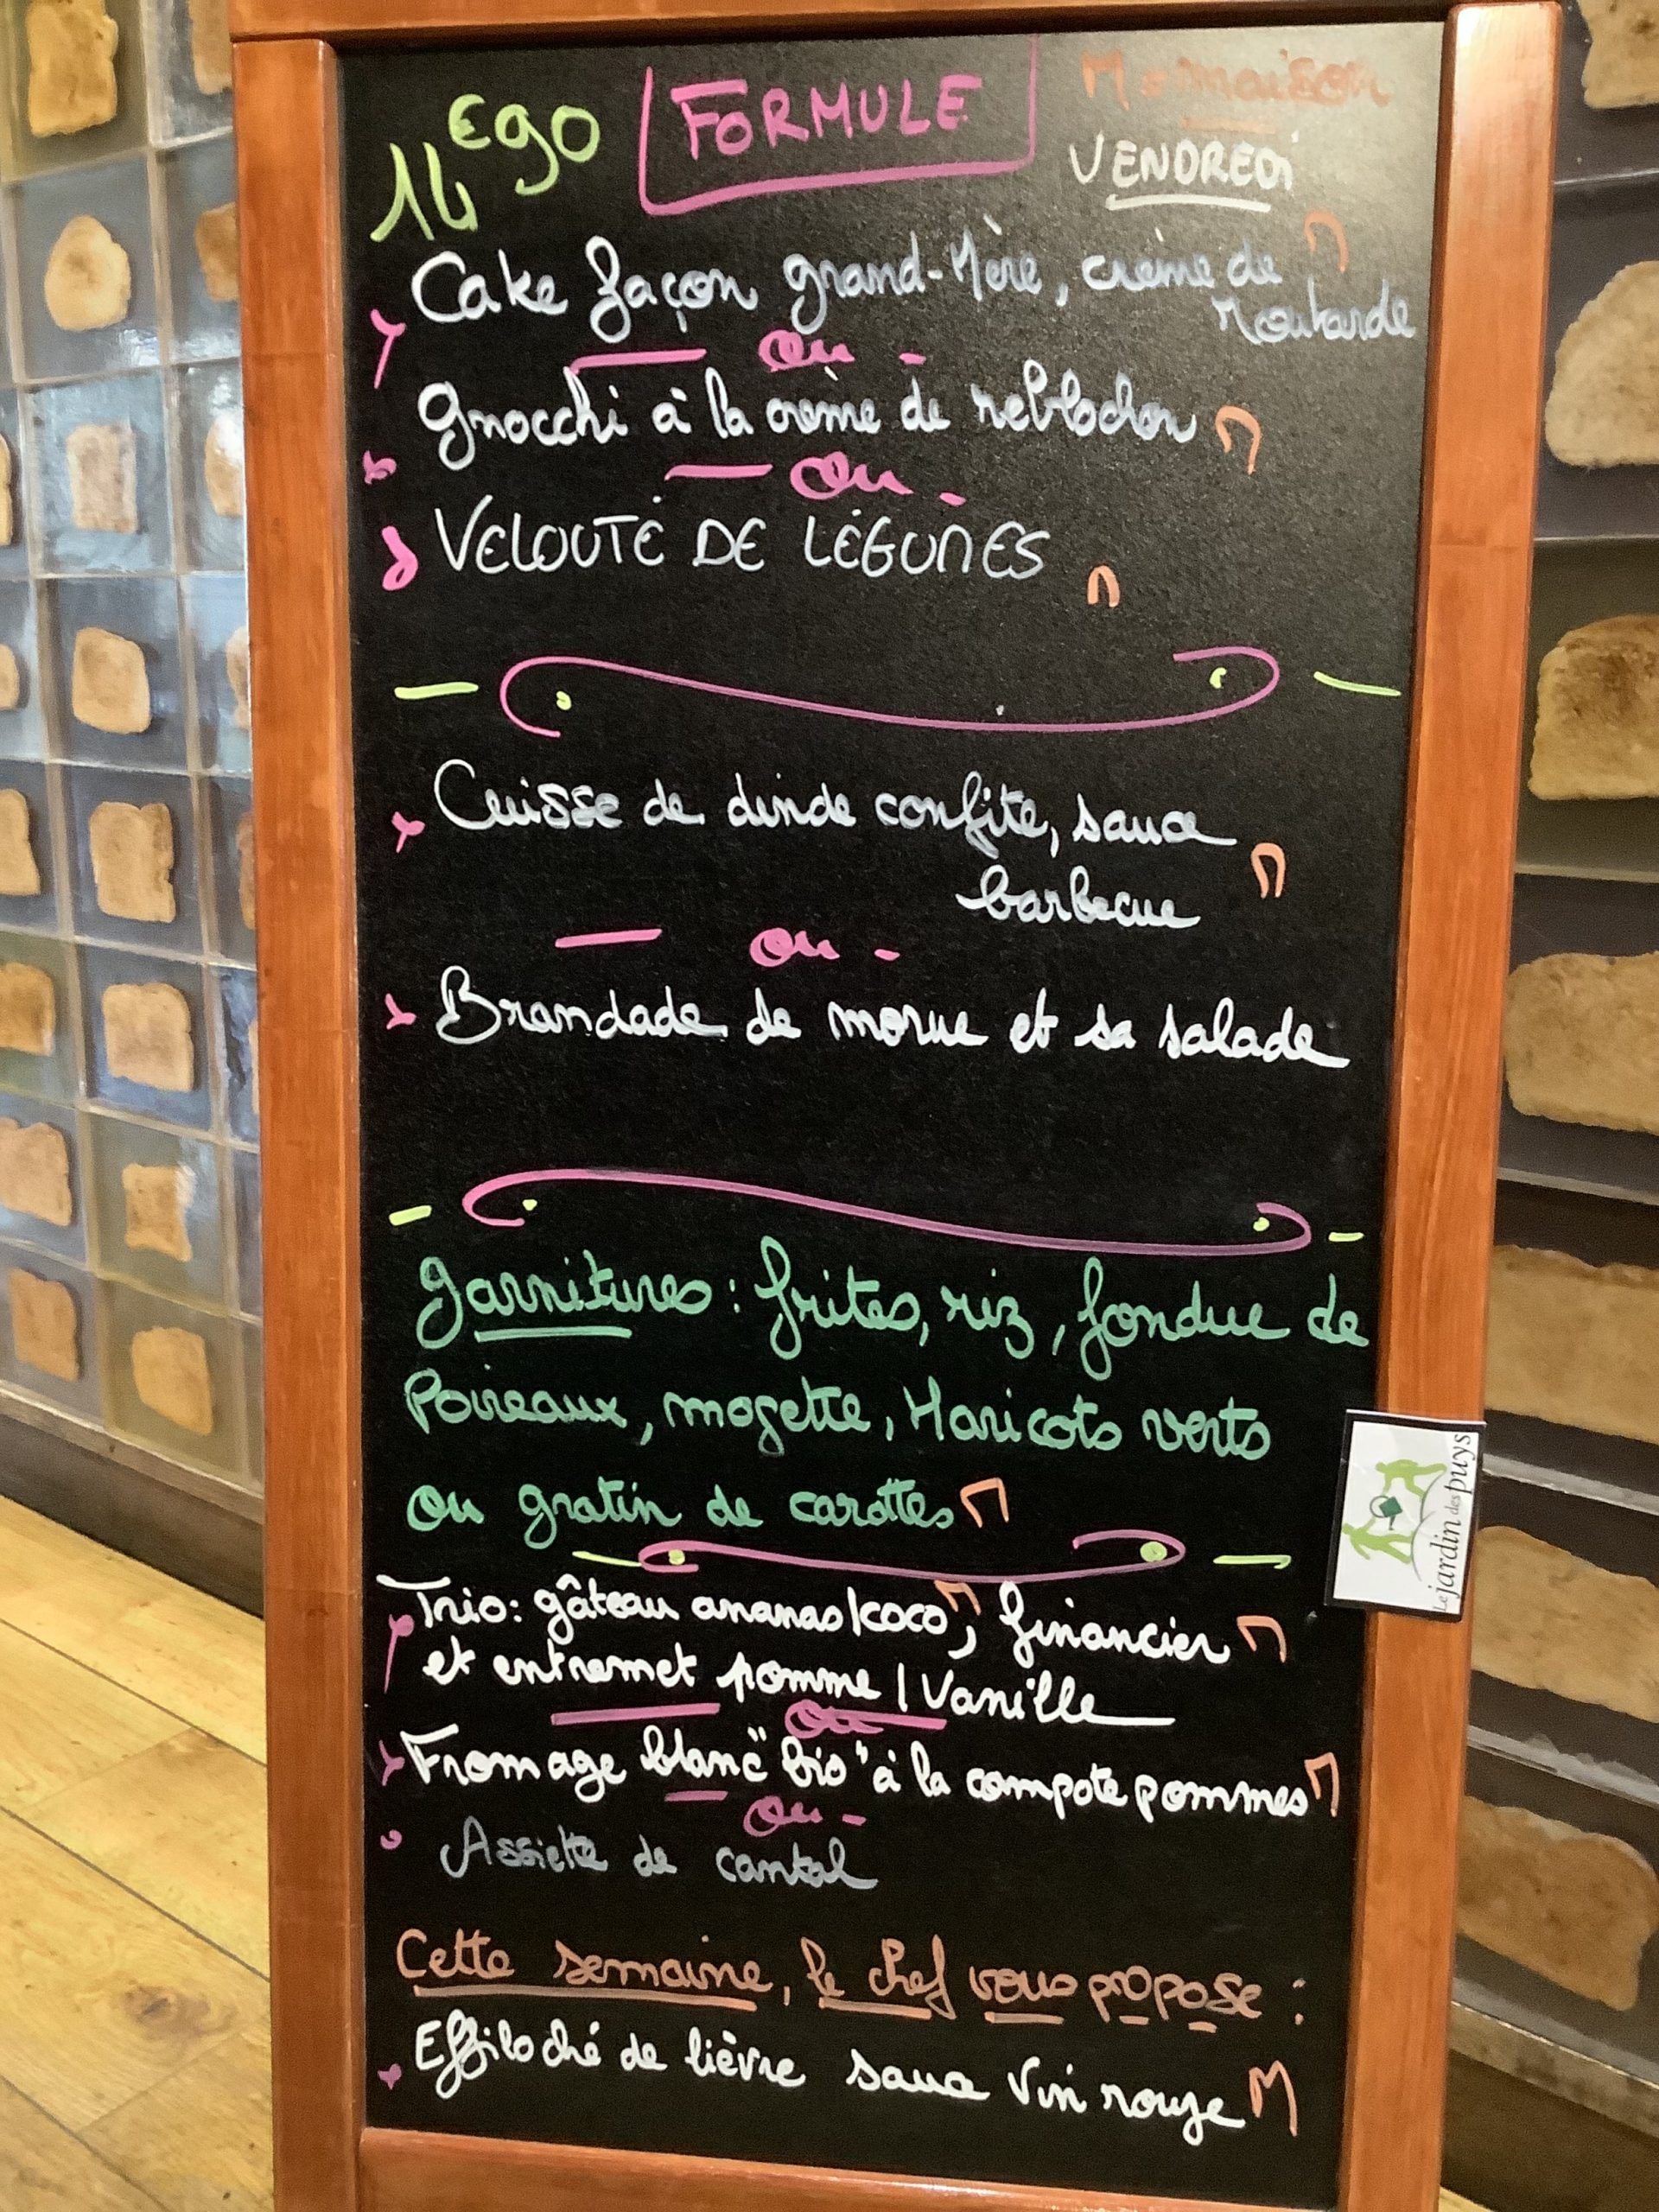 14€90 FORMULE M = maison
VENDREDI
Cake façon grand-Mère, crème de M
Moutarde
ou
Gnocchi à la crème de reblochon M
ou
VELOUTÉ DE LÉGUMES M
Cuisse de dinde confite, sauce
barbecue M
ou
Brandade de morue et sa salade
Garnitures : frites, riz, fondue de
Poireaux, mogette, Haricots verts
ou gratin de carottes M
Trio : gâteau ananas/coco M, financier M
et entremet pomme / Vanille
ou
Fromage blanc "bio" à la compote pommes M
ou
Assiette de cantal
Cette semaine, le chef vous propose :
Effiloché de lièvre sauce Vin rouge M
Le jardin des puys